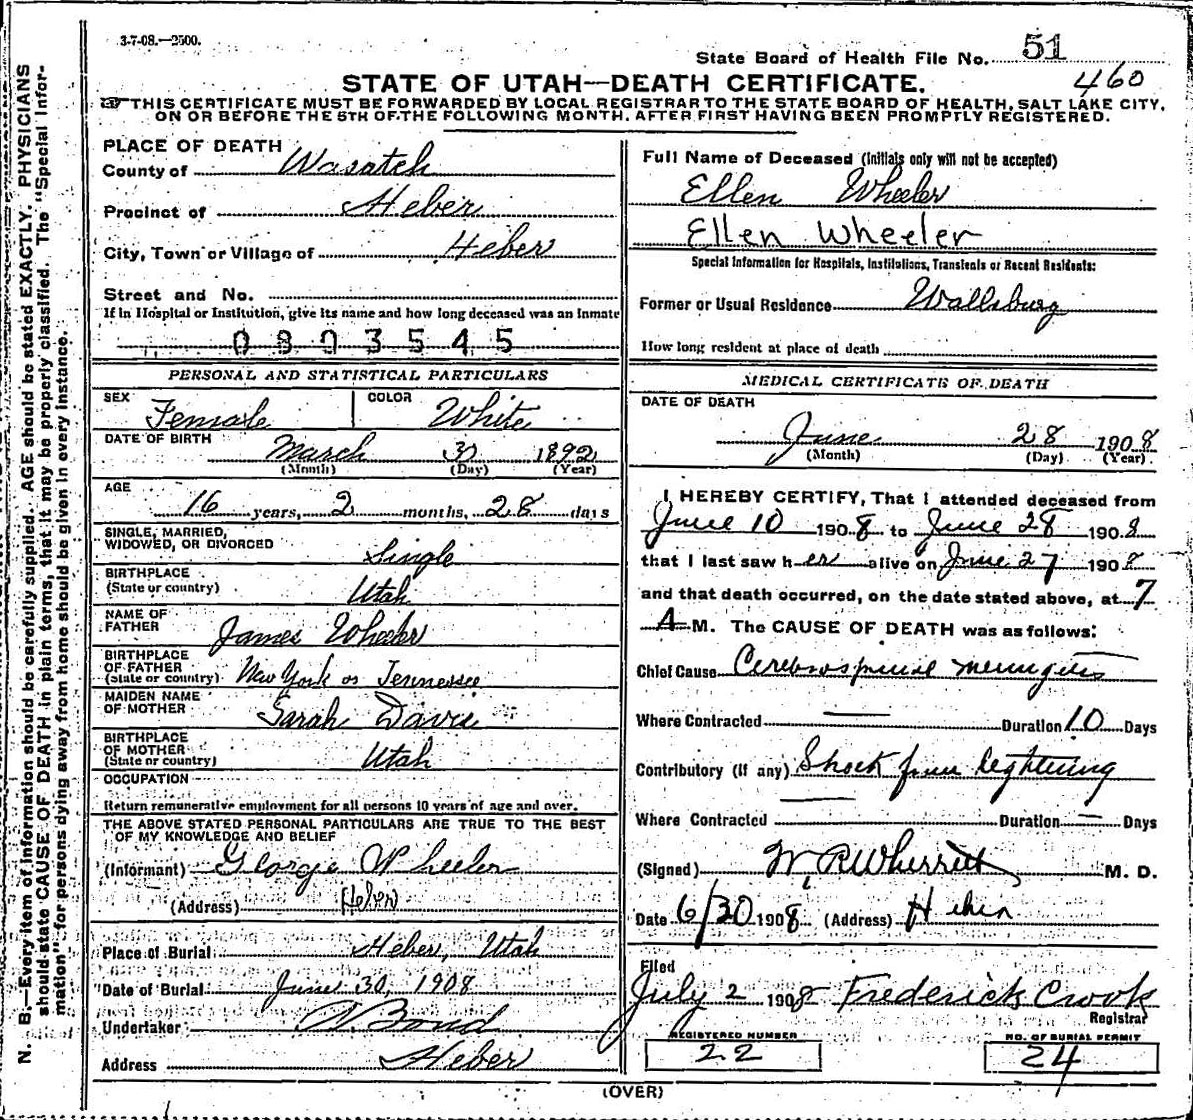 3-7-08.—2500.
State Board of Health File No. 51
460
STATE OF UTAH—DEATH CERTIFICATE.
THIS CERTIFICATE MUST BE FORWARDED BY LOCAL REGISTRAR TO THE STATE BOARD OF HEALTH, SALT LAKE CITY,
ON OR BEFORE THE 5TH OF THE FOLLOWING MONTH, AFTER FIRST HAVING BEEN PROMPTLY REGISTERED.
N. B.—Every item of information should be carefully supplied. AGE should be stated EXACTLY. PHYSICIANS
should state CAUSE OF DEATH in plain terms, that it may be properly classified. The "Special Infor-
mation" for persons dying away from home should be given in every instance.
PLACE OF DEATH
County of Wasatch
Precinct of Heber
City, Town or Village of Heber
Street and No.
If in Hospital or Institution, give its name and how long deceased was an Inmate
0803545
PERSONAL AND STATISTICAL PARTICULARS
SEX Female COLOR White
DATE OF BIRTH March 31 1892
(Month) (Day) (Year)
AGE
16 years, 2 months, 28 days
SINGLE, MARRIED,
WIDOWED, OR DIVORCED Single
BIRTHPLACE
(State or country) Utah
NAME OF
FATHER James Wheeler
BIRTHPLACE
OF FATHER
(State or country) New York or Tennessee
MAIDEN NAME
OF MOTHER Sarah Davis
BIRTHPLACE
OF MOTHER
(State or country) Utah
OCCUPATION
Return remunerative employment for all persons 10 years of age and over.
THE ABOVE STATED PERSONAL PARTICULARS ARE TRUE TO THE BEST
OF MY KNOWLEDGE AND BELIEF
(Informant) George Wheeler
(Address) Heber
Place of Burial Heber, Utah
Date of Burial June 30, 1908
Undertaker A Bond
Address Heber
Full Name of Deceased (Initials only will not be accepted)
Ellen Wheeler
Ellen Wheeler
Special Information for Hospitals, Institutions, Transients or Recent Residents:
Former or Usual Residence Wallsburg
How long resident at place of death
MEDICAL CERTIFICATE OF DEATH
DATE OF DEATH
June 28 1908
(Month) (Day) (Year)
I HEREBY CERTIFY, That I attended deceased from
June 10 1908 to June 28 1908
that I last saw her alive on June 27 1908
and that death occurred, on the date stated above, at 7
A M. The CAUSE OF DEATH was as follows:
Chief Cause Cerebrospinal meningitis
Where Contracted — Duration 10 Days
Contributory (if any) Shock from lightning
Where Contracted — Duration — Days
(Signed) W. R Wherritt M. D.
Date 6/30 1908 (Address) Heber
Filed
July 2 1908 Frederick Crook
Registrar
REGISTERED NUMBER
22
NO. OF BURIAL PERMIT
24
(OVER)